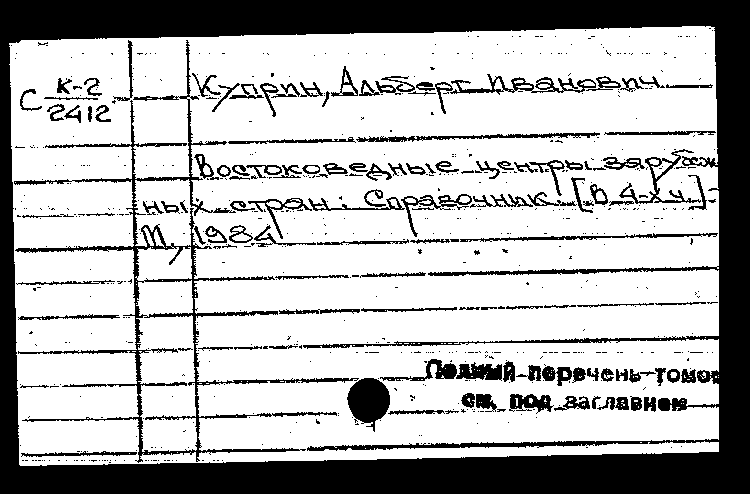 С К-2
2412
Куприн, Альберт Иванович
Востоковедные центры зарубеж
ных стран: Справочник. [В 4-х ч.] -
М., 1984
Полный перечень томов
см. под заглавием